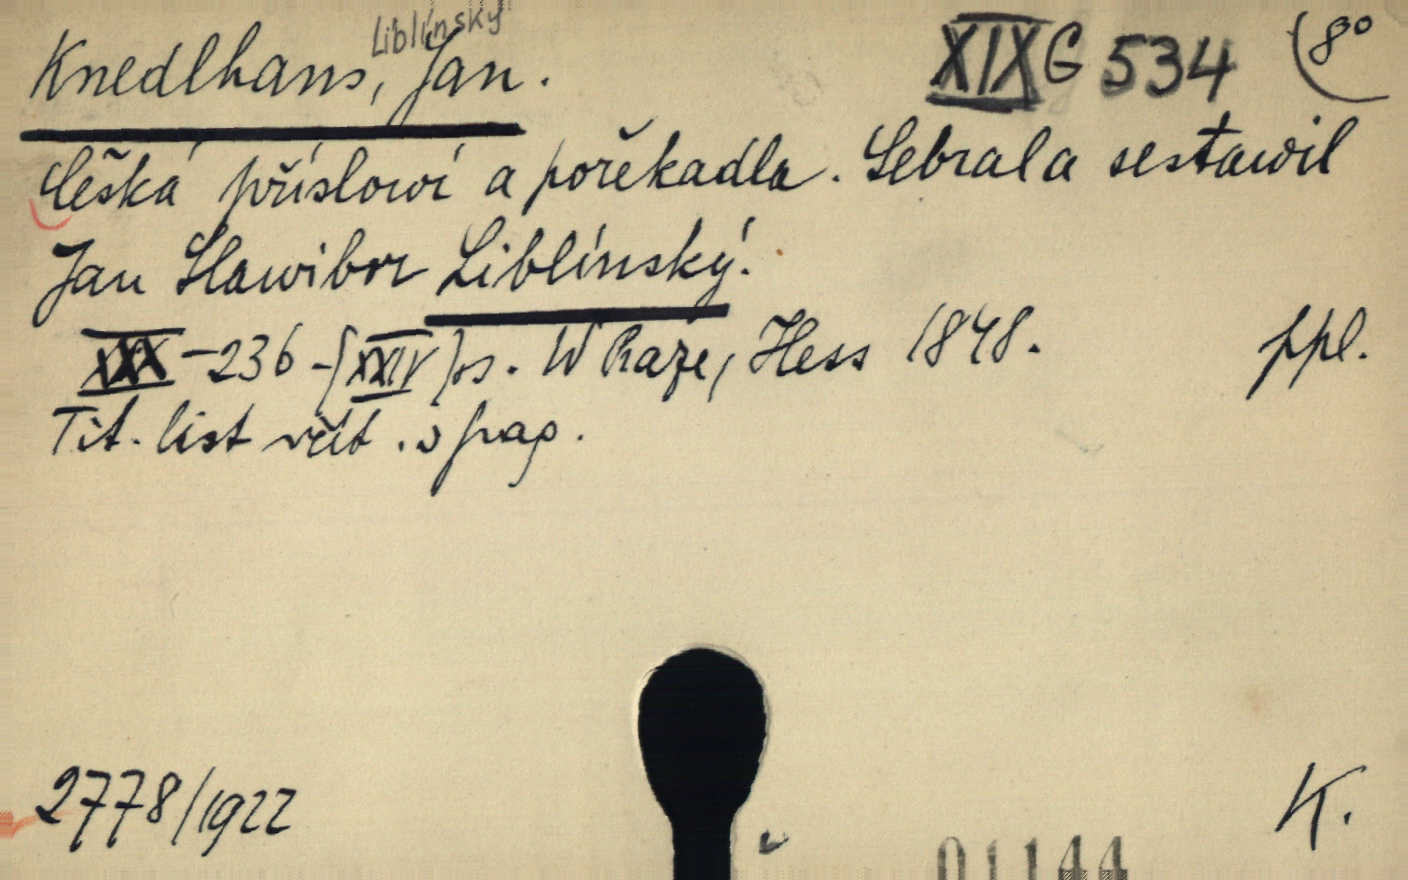 Liblínský
Knedlhans, Jan. XIX G 534 8°
Česká příslowí a pořekadla. Sebral a sestawil
Jan Slawibor Liblínský.
XXX-236-(XXIV) s. W Praze, Hess 1848. ppl.
Tit. list
2778/1922 K.
01144